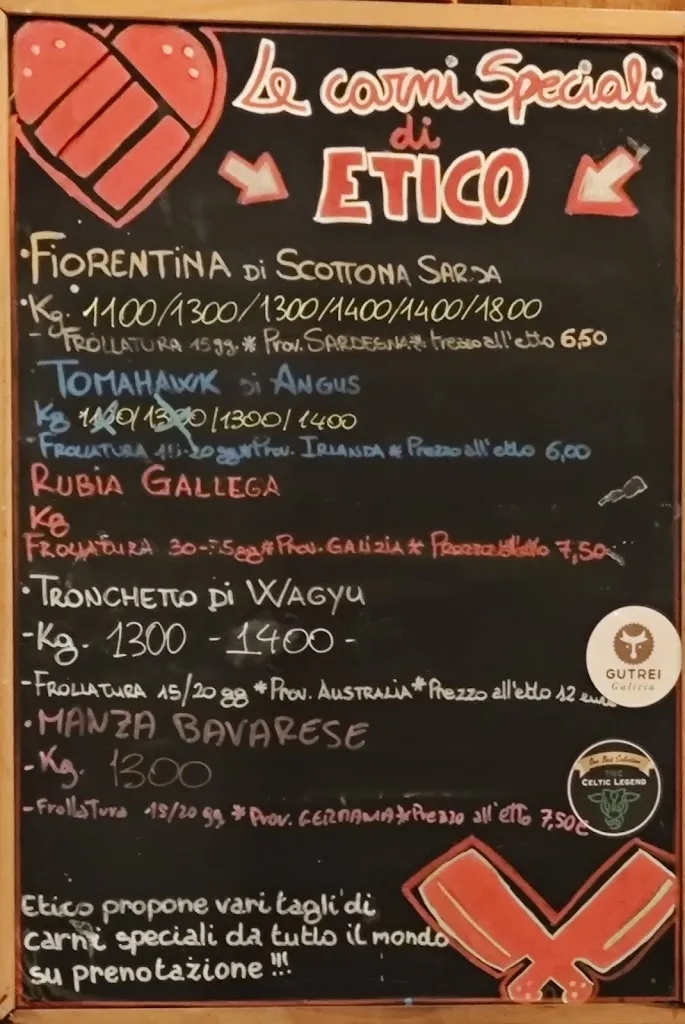 Le carni Speciali
di
ETICO
· FIORENTINA DI SCOTTONA SARDA
· Kg. 1100/1300/1300/1400/1400/1800
- FROLLATURA 15 gg. * Prov. SARDEGNA * Prezzo all'etto 6,50
TOMAHAWK di ANGUS
Kg 1300/1400
- FROLLATURA 20 gg * Prov. IRLANDA * Prezzo all'etto 6,00
RUBIA GALLEGA
Kg
FROLLATURA 30- gg * Prov. GALIZIA * Prezzo all'etto 7,50
· TRONCHETTO DI WAGYU
- Kg. 1300 - 1400 -
- FROLLATURA 15/20 gg * Prov. AUSTRALIA * Prezzo all'etto 12 euro
· MANZA BAVARESE
- Kg. 1300
- Frollatura 15/20 gg * Prov. GERMANIA * Prezzo all'etto 7,50€
GUTREI
Galicia
Our Best Selection
THE
CELTIC LEGEND
Etico propone vari tagli di
carni speciali da tutto il mondo
su prenotazione !!!